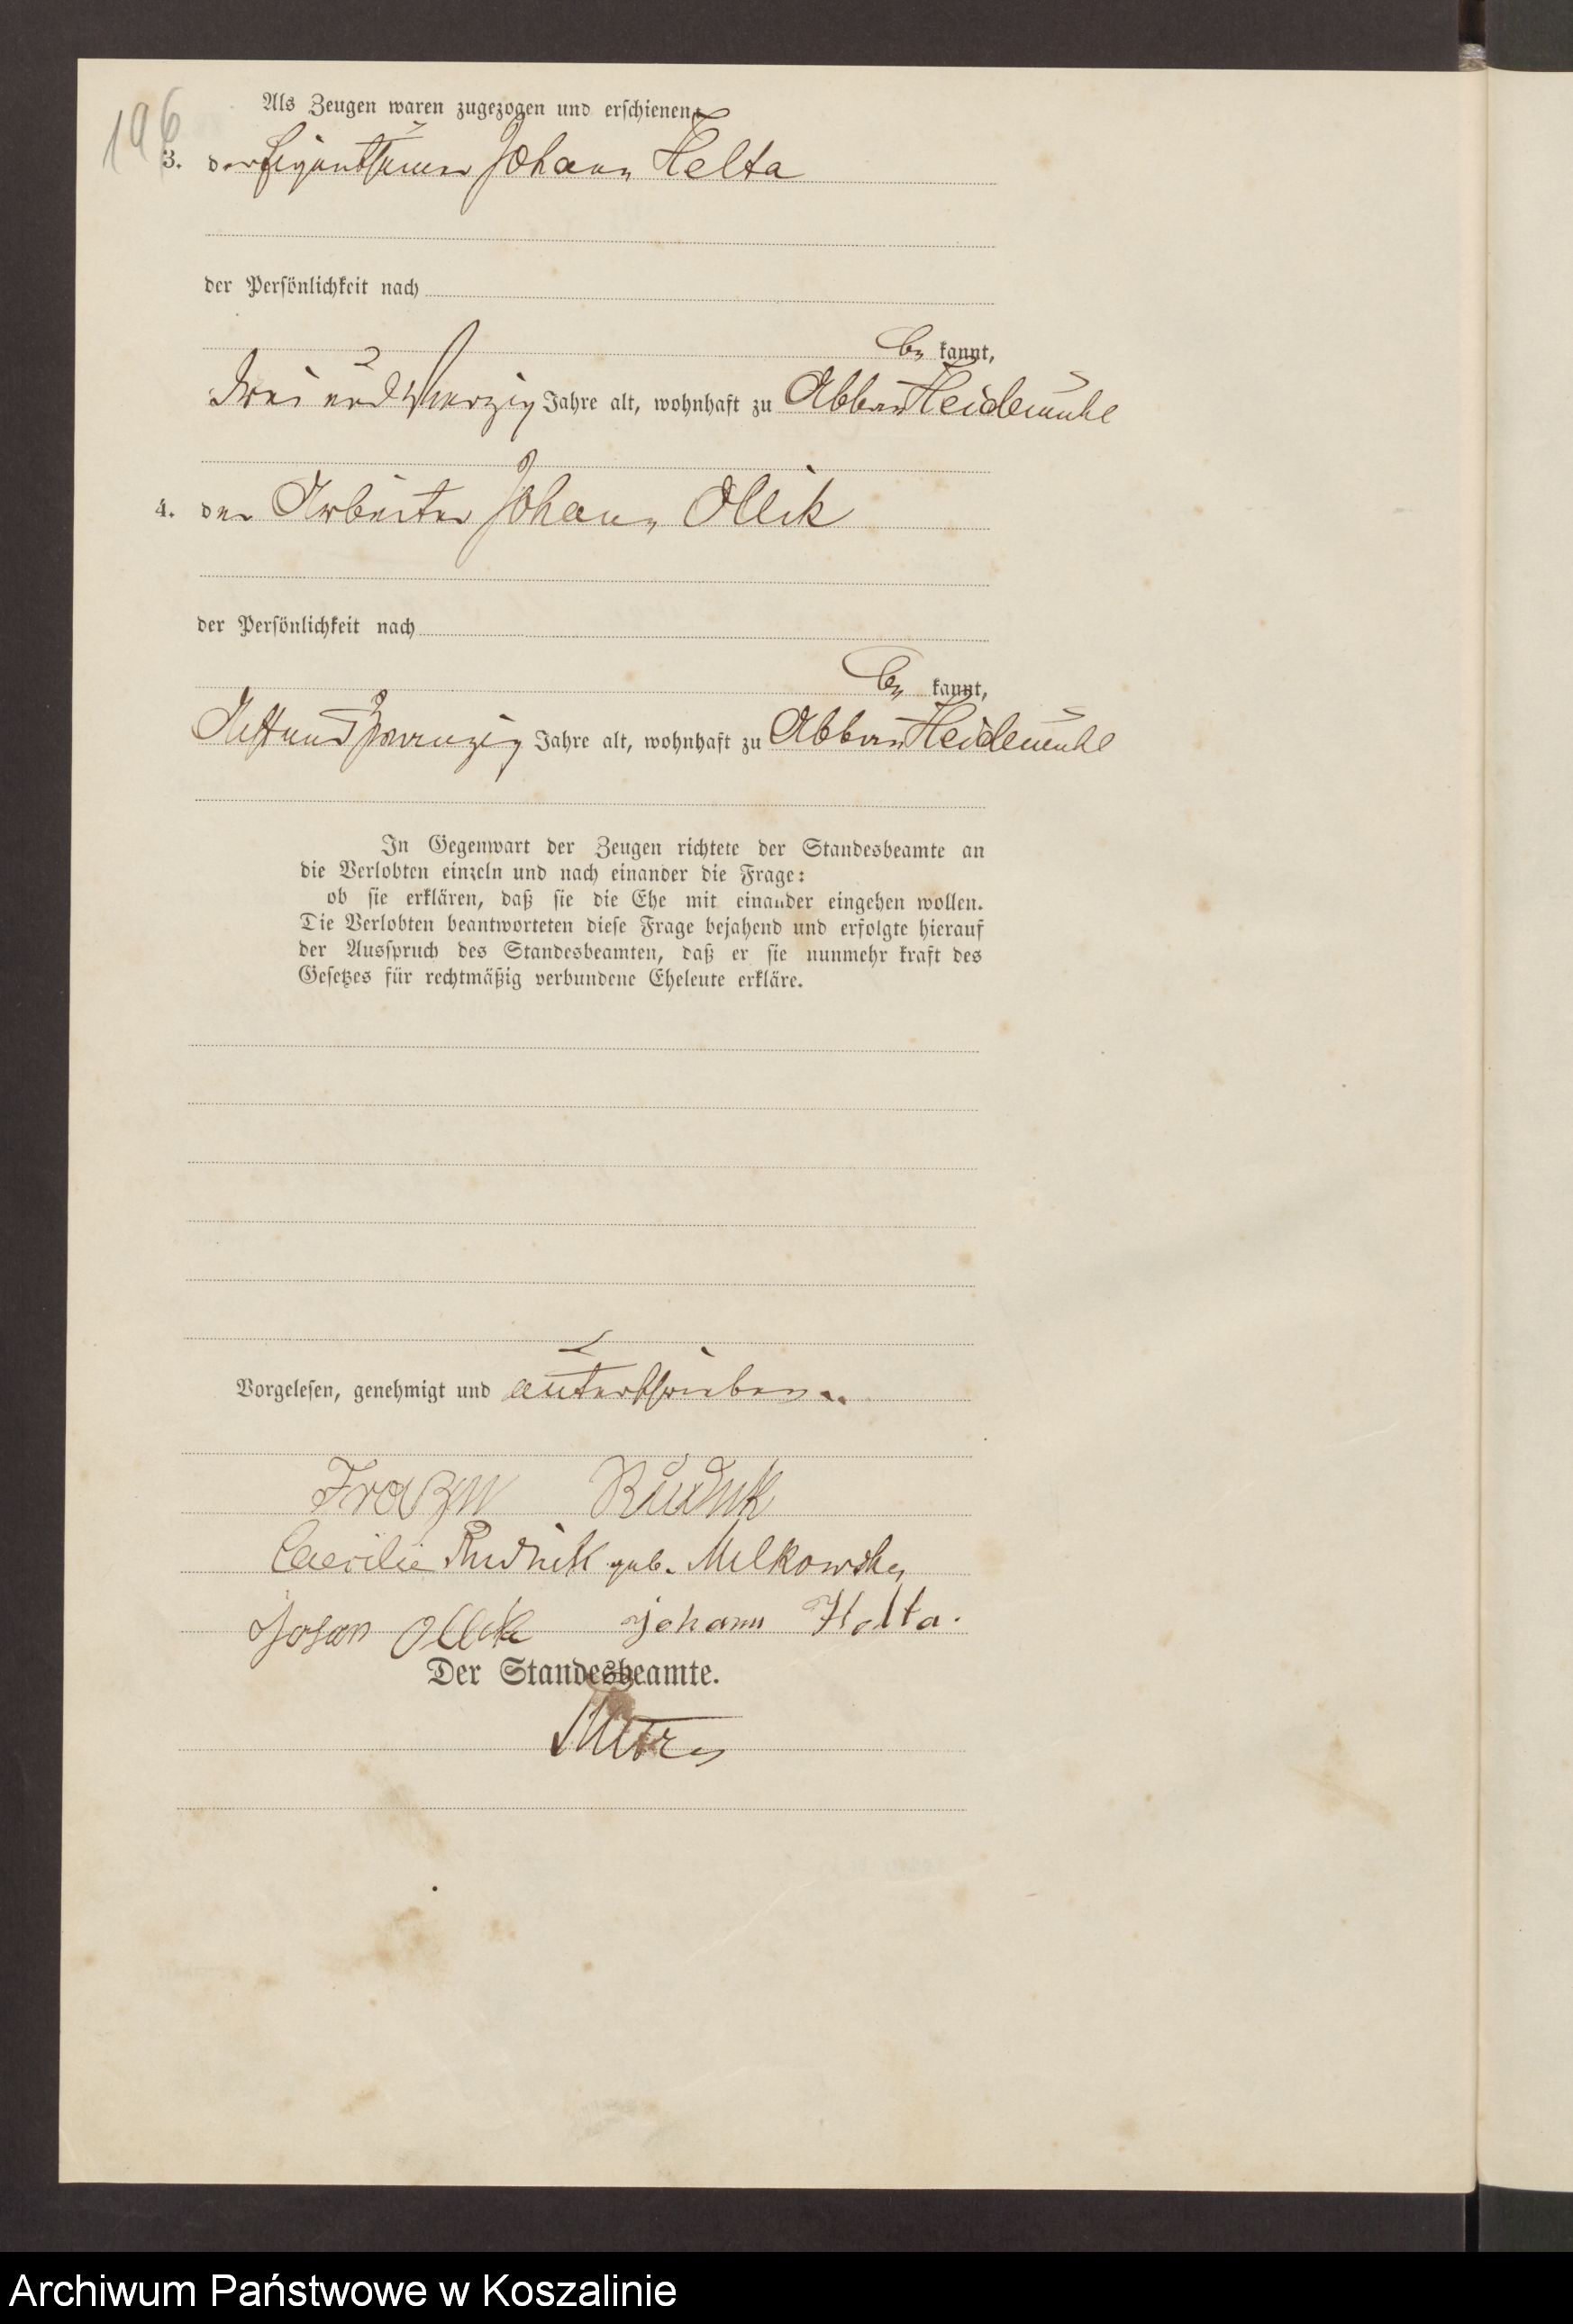 196
Als Zeugen waren zugezogen und erschienen:
3. der Eigenthümer Johann Helta
der Persönlichkeit nach
be kannt,
drei und vierzig Jahre alt, wohnhaft zu Abbau Heidemühl
4. der Arbeiter Johann Ollik
der Persönlichkeit nach
be kannt,
Achtundzwanzig Jahre alt, wohnhaft zu Abbau Heidemühl
In Gegenwart der Zeugen richtete der Standesbeamte an
die Verlobten einzeln und nach einander die Frage:
ob sie erklären, daß sie die Ehe mit einander eingehen wollen.
Die Verlobten beantworteten diese Frage bejahend und erfolgte hierauf
der Ausspruch des Standesbeamten, daß er sie nunmehr kraft des
Gesetzes für rechtmäßig verbundene Eheleute erkläre.
Vorgelesen, genehmigt und unterschrieben.
Franz Rudnik
Caecilie Rudnik geb. Milkowska
Johan Ollik Johann Helta.
Der Standesbeamte.
Archiwum Państwowe w Koszalinie